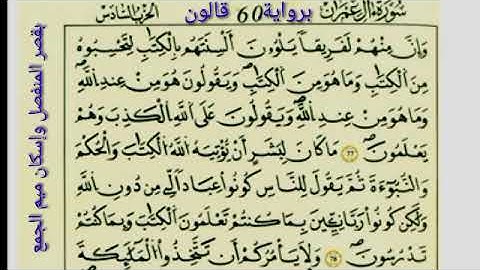 سُورَةُ ءَالِ عِمْرَانَ برواية 60 قالون الحزب السادس
وَإِنَّ مِنْهُمْ لَفَرِيقاً يَلْوُۥنَ أَلْسِنَتَهُم بِالْكِتَٰبِ لِتَحْسِبُوهُ
مِنَ الْكِتَٰبِ وَمَا هُوَ مِنَ الْكِتَٰبِ وَيَقُولُونَ هُوَ مِنْ عِندِ اللَّهِ
وَمَا هُوَ مِنْ عِندِ اللَّهِ وَيَقُولُونَ عَلَى اللَّهِ الْكَذِبَ وَهُمْ
يَعْلَمُونَ مَا كَانَ لِبَشَرٍ أَنْ يُؤْتِيَهُ اللَّهُ الْكِتَٰبَ وَالْحُكْمَ
وَالنُّبُوٓءَةَ ثُمَّ يَقُولَ لِلنَّاسِ كُونُوا عِبَاداً لِّي مِن دُونِ اللَّهِ
وَلَٰكِن كُونُوا رَبَّٰنِيِّينَ بِمَا كُنتُمْ تَعْلَمُونَ الْكِتَٰبَ وَبِمَا كُنتُمْ
تَدْرُسُونَ وَلَا يَأْمُرُكُمْ أَن تَتَّخِذُوا الْمَلَٰٓئِكَةَ
بقصر المنفصل وإسكان ميم الجمع